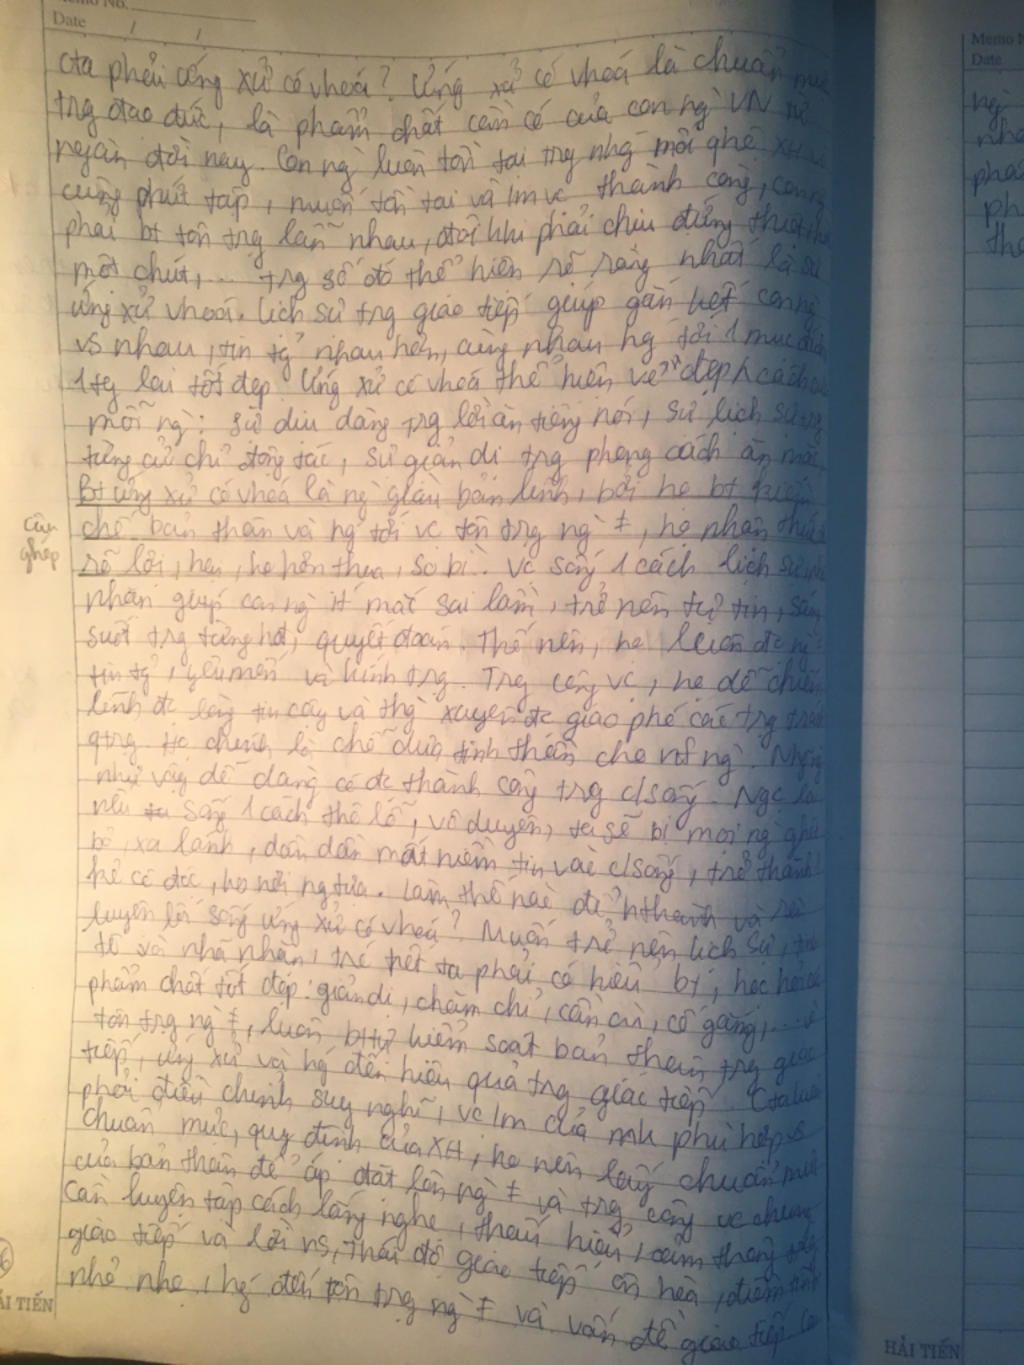 Memo No.
Date / /
cta phải ứng xử có vhoá? Ứng xử có vhoá là chuẩn mực
trg đạo đức, là phẩm chất cần có của con ngì VN từ
ngàn đời nay. Con ngì luôn tồn tại trg nhg mối qhệ XH
cùng phức tạp, muốn tồn tại và lm vc thành công, con ng
phải bt tôn trg lẫn nhau, đôi khi phải chịu đứng thiệt
một chút, ... trg số đó thể hiện rõ ràng nhất là sự
ứng xử vhoá. Lịch sự trg giao tiếp giúp gắn kết con ng
vs nhau, tin tg nhau hơn, cùng nhau hg tới 1 mục đích
1 tg lai tốt đẹp. Ứng xử có vhoá thể hiện vẻ đẹp cách
mỗi ngì: sự dịu dàng trg lời ăn tiếng nói, sự lịch sự trg
từng cử chỉ động tác, sự giản dị trg phong cách ăn mặc
Bt ứng xử có vhoá là ngì giàu bản lĩnh, bởi họ bt kiềm
chế bản thân và hg tới vc tôn trg ngì ≠, họ nhận thức
rõ lời, hơn thua, so bì. Vc sống 1 cách lịch sự
nhận giúp con ngì ít mắc sai lầm, trở nên tự tin, sáng
suốt trg từng hđ, quyết đoán. Thế nên, họ luôn đc ngì
tin tg, yêu mến và kính trg. Trg công vc, họ dễ chiếm
lĩnh đc lòng tin cậy và thg xuyên đc giao phó các trg trách
qtrg. Họ chính là chỗ dựa tinh thần cho ngì. Những
như vậy dễ dàng có đc thành công trg c/sống. Ngc lại
nếu sống 1 cách thô lỗ, vô duyên, ta sẽ bị mọi ngì ghét
bỏ, xa lánh, dần dần mất niềm tin vào c/sống, trở thành
kẻ cô độc. Làm thế nào để hthành và rèn
luyện lối sống ứng xử có vhoá? Muốn trở nên lịch sự,
tế và nhã nhặn, trc hết ta phải có hiểu bt, học hỏi
phẩm chất tốt đẹp: giản dị, chăm chỉ, cần cù, cố gắng, ...
tôn trg ngì ≠, luôn bt tự kiểm soát bản thân trg giao
tiếp, ứng xử và hg đến hiệu quả trg giao tiếp. Cta luôn
phải điều chỉnh suy nghĩ, vc lm của mk phù hợp vs
chuẩn mực, quy định của XH, ko nên lấy chuẩn mực
của bản thân để áp đặt lên ngì ≠ và trg công vc chung
cần luyện tập cách lắng nghe, thấu hiểu, cảm thông trg
giao tiếp và lời ns, thái độ giao tiếp ôn hoà, điềm tĩnh
nhỏ nhẹ, hg đến tôn trg ngì ≠ và vấn đề giao tiếp
câu
ghép
HẢI TIẾN
Memo N
Date
ngì
phải
HẢI TIẾN